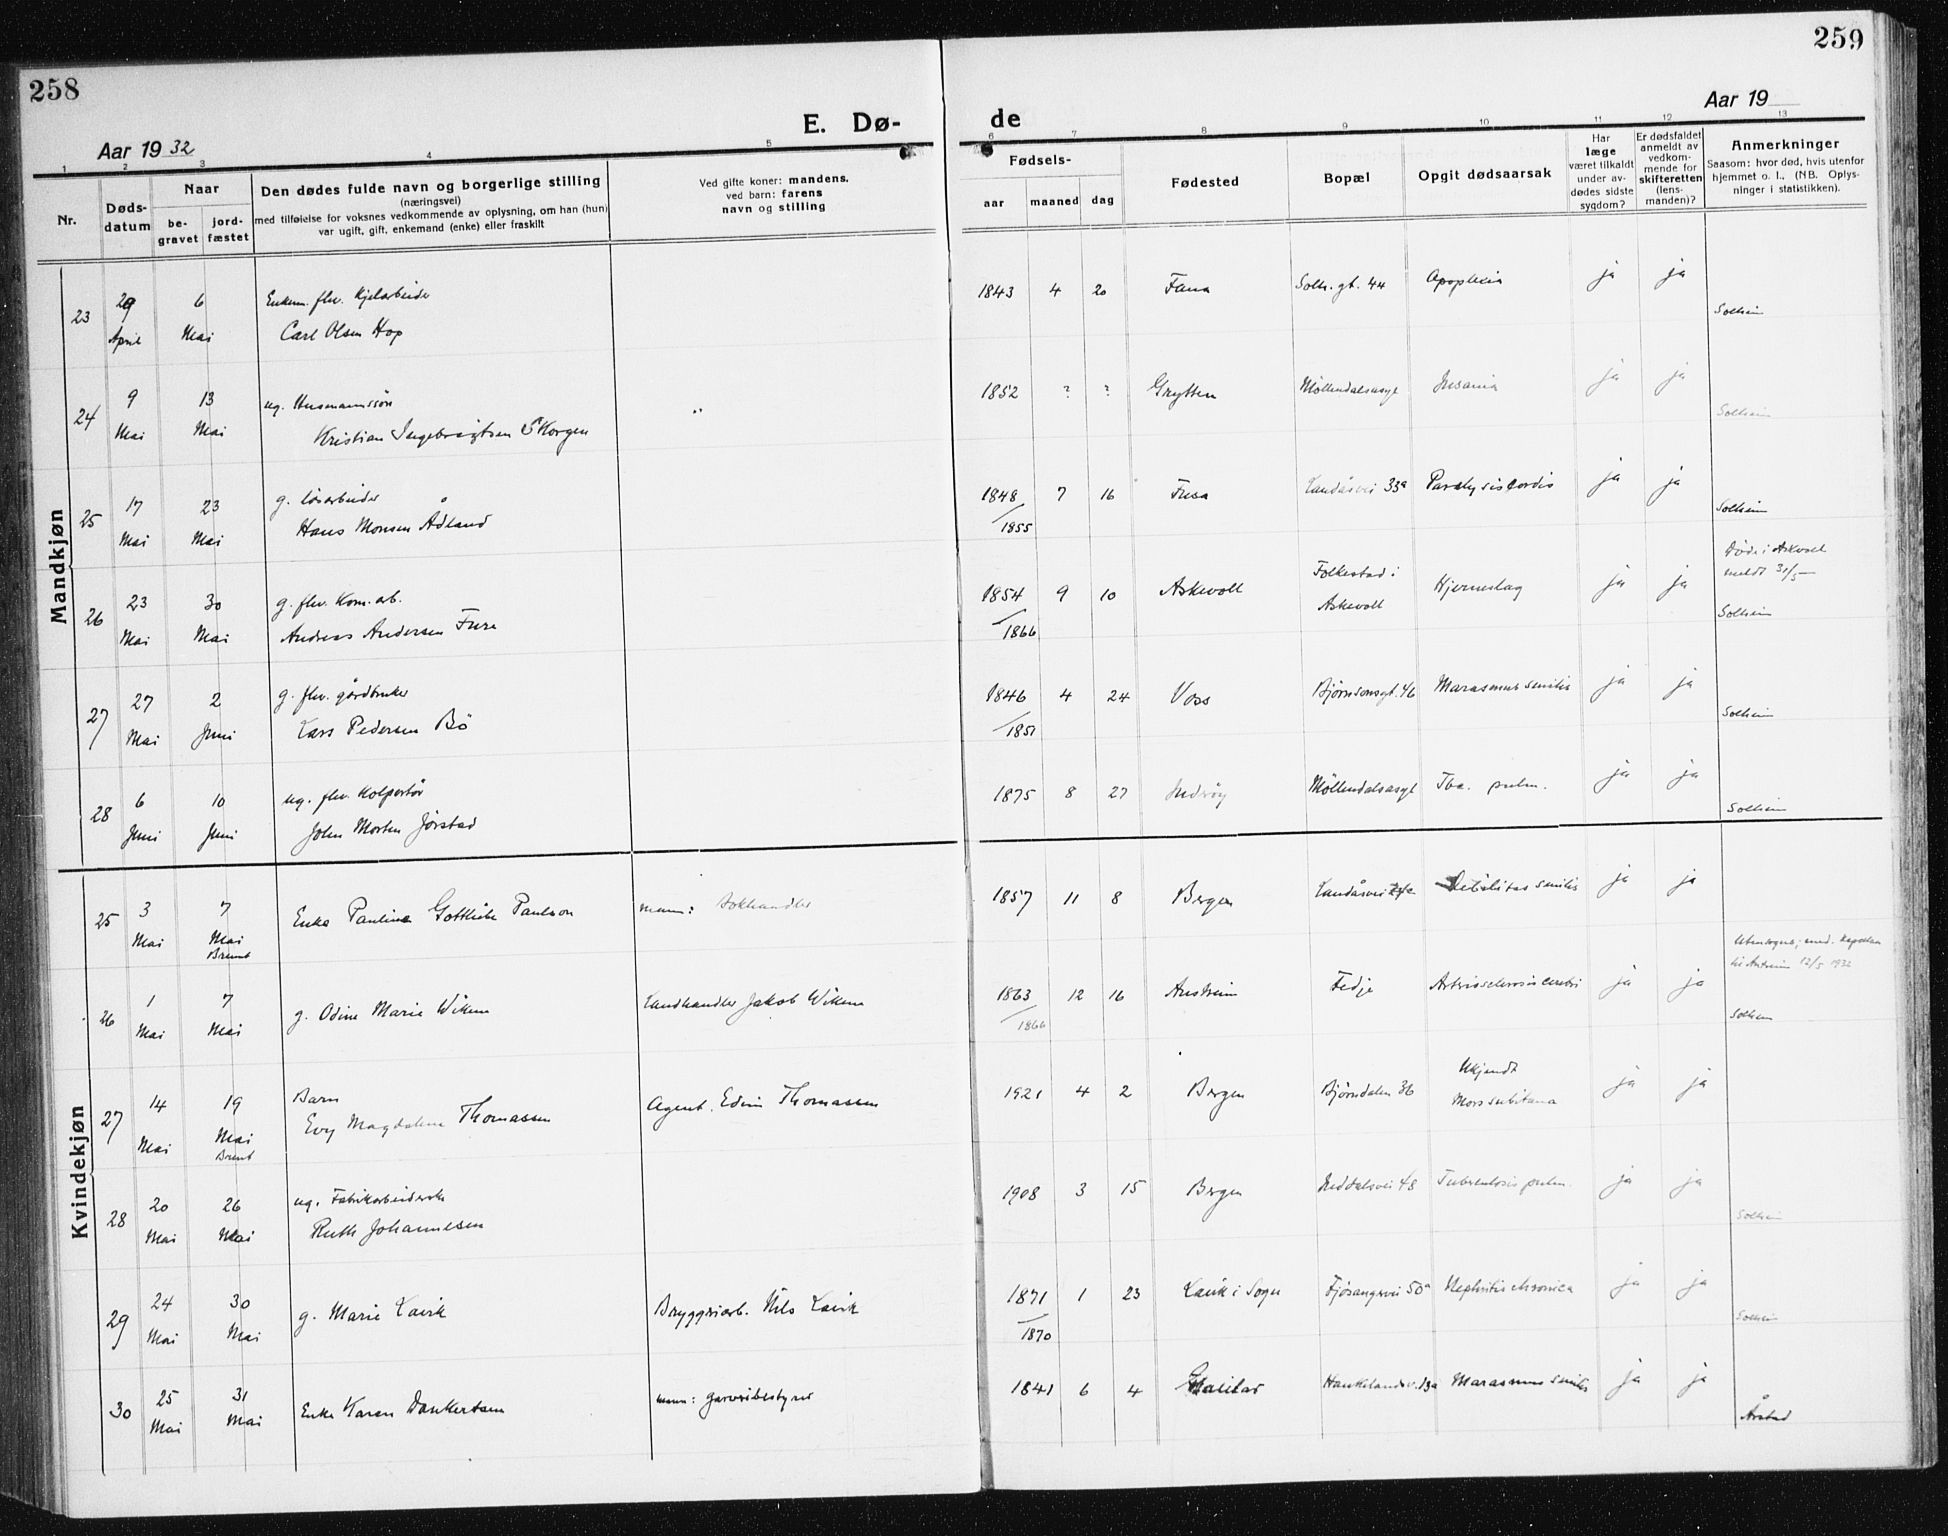 258
259
E. Dø- de
Aar 1932
Aar 19
1 2 3 4 5 6 7 8 9 10 11 12 13
Nr.
Døds-
datum
Naar
be-
gravet
jord-
fæstet
Den dødes fulde navn og borgerlige stilling
(næringsvei)
med tilføielse for voksnes vedkommende av oplysning, om han (hun)
var ugift, gift, enkemand (enke) eller fraskilt
Ved gifte koner: mandens.
ved barn: farens
navn og stilling
Fødsels-
aar maaned dag
Fødested
Bopæl
Opgit dødsaarsak
Har
læge
været tilkaldt
under av-
dødes sidste
sygdom?
Er dødsfaldet
anmeldt av
vedkom-
mende for
skifteretten
(lens-
manden)?
Anmerkninger
Saasom: hvor død, hvis utenfor
hjemmet o. l., (NB. Oplys-
ninger i statistikken).
Mandkjøn
23 29 April 6 Mai Enkem. fhv. Kjelarbeider
Carl Olsen Hop
1843 4 20 Fana Solh.gt. 44 Apoplexia ja ja Solheim
24 9 Mai 13 Mai ug. Husmannssön
Kristian Ingebrigtsen Skorgen "
1852 ? ? Grytten Möllendalsasyl Insania ja ja Solheim
25 17 Mai 23 Mai g. løsarbeider
Hans Monsen Ådland
1848/1855 7 16 Fusa Landåsvei 33a Paralysis cordis ja ja Solheim
26 23 Mai 30 Mai g. fhv. Kom.arb.
Andreas Andersen Fure
1854/1866 9 10 Askevoll Folkestad i
Askevoll Hjerneslag ja ja Døde i Askevoll
meldt 30/5
Solheim
27 27 Mai 2 Juni g. fhv. gårdbruker
Lars Pedersen Bö
1846/1851 4 24 Voss Bjørnsonsgt. 46 Marasmus senilis ja ja Solheim
28 6 Juni 10 Juni ug. fhv. Kolportør
John Morten Jørstad
1875 8 27 Inderøy Möllendalsasyl Tbc. pulm. ja ja Solheim
Kvindekjøn
25 3 Mai 7 Mai Brent Enke Pauline Gottliebe Paulson mann: Bokhandler
1857 11 8 Bergen Landåsvei Debilitas senilis ja ja
26 1 Mai 7 Mai g. Odine Marie Wiken Landhandler Jakob Wiken
1863/1866 12 16 Austrheim Fedje Arteriosclerosis cerebri ja ja Utensogns; med.
til Austrheim 12/5 1932
Solheim
27 14 Mai 19 Mai Brent Barn
Evy Magdalene Thomassen Agent. Edvin Thomassen
1921 4 2 Bergen Bjørndalen 36 Ukjendt
Mors subitana ja ja
28 20 Mai 26 Mai ug. Fabrikarbeiderske
Ruth Johannesen
1908 3 15 Bergen 48 Tuberculosis pulm. ja ja Solheim
29 24 Mai 30 Mai g. Marie Lavik Bryggeriarb. Nils Lavik
1871/1870 1 23 Lavik i Sogn Fjøsangervei 50a Nephritis chronica ja ja Solheim
30 25 Mai 31 Mai Enke Karen Dankertsen mann: garveribestyrer
1841 6 4 Haukelandsv. 13a Marasmus senilis ja ja Årstad